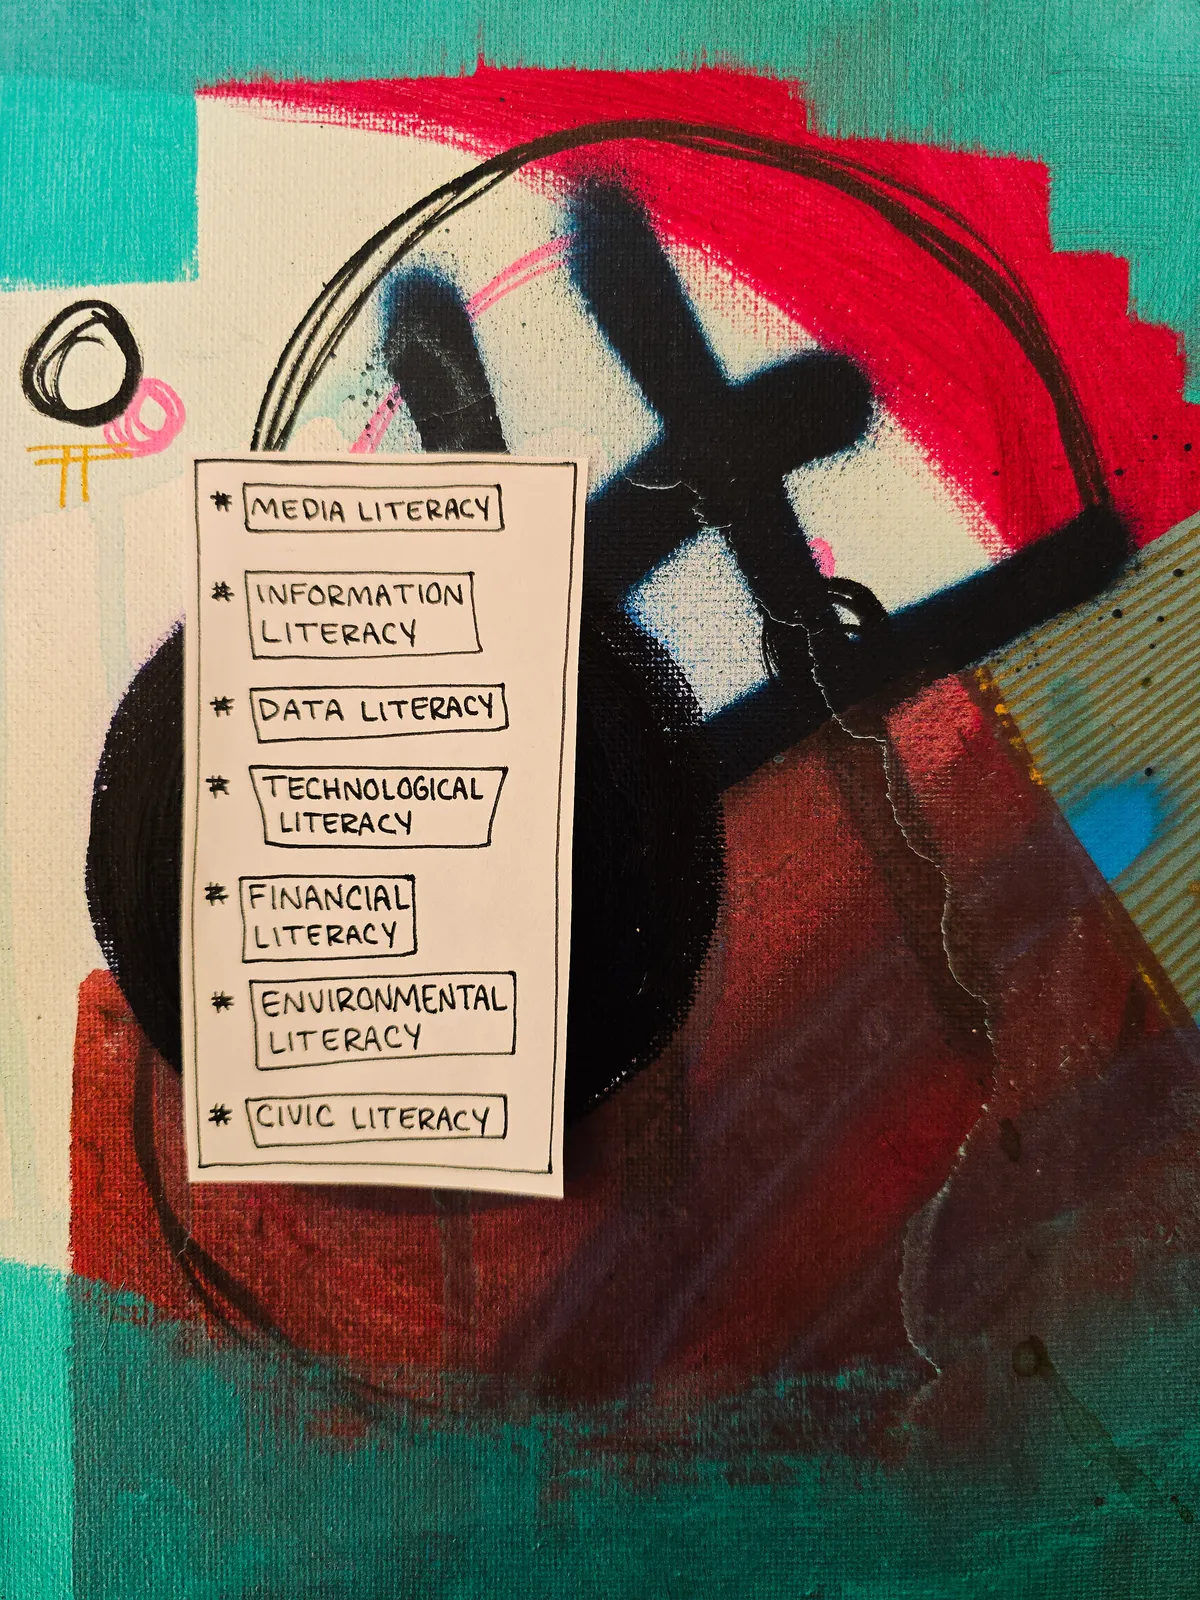 # MEDIA LITERACY
# INFORMATION
LITERACY
# DATA LITERACY
# TECHNOLOGICAL
LITERACY
# FINANCIAL
LITERACY
# ENVIRONMENTAL
LITERACY
# CIVIC LITERACY